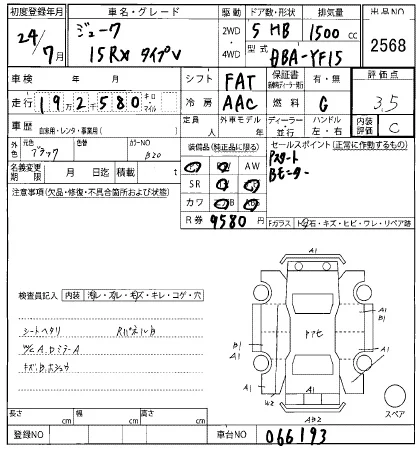 初度登録年月 車名・グレード 駆動 ドア数・形状 排気量 出品NO
24/7月 ジューク 2WD・4WD 5 HB 1500cc 2568
15RX タイプV 型式 DBA-YF15
車検 年 月 シフト FAT 保証書 有・無 評価点
走行 19万2千580 キロ・マイル 冷房 AAC 燃料 G 3.5
車歴 自家用・レンタ・事業用( ) 定員 人 外車モデル ディーラー・並行 ハンドル 左・右 内装評価 C
外装 元色 ブラック 色替 カラーNO B20 装備品(純正品に限る) セールスポイント(正常に作動するもの)
名義変更期限 月 日迄 積載 t AW Pスタート
注意事項(欠品・修復・不具合箇所および状態) SR Bモニター
カワ
R券 9580円 Fガラス 石・キズ・ヒビ・ワレ・リペア跡
A1
検査員記入 内装 汚レ・スレ・キズ・キレ・コゲ・穴
シートヘタリ RパネルB
W/C A. DミラーA
トアセ
B1 A1
A1 B1
A1
W2
A1
AB2
スペア
長さ cm 幅 cm 高さ cm
登録NO 車台NO 066193